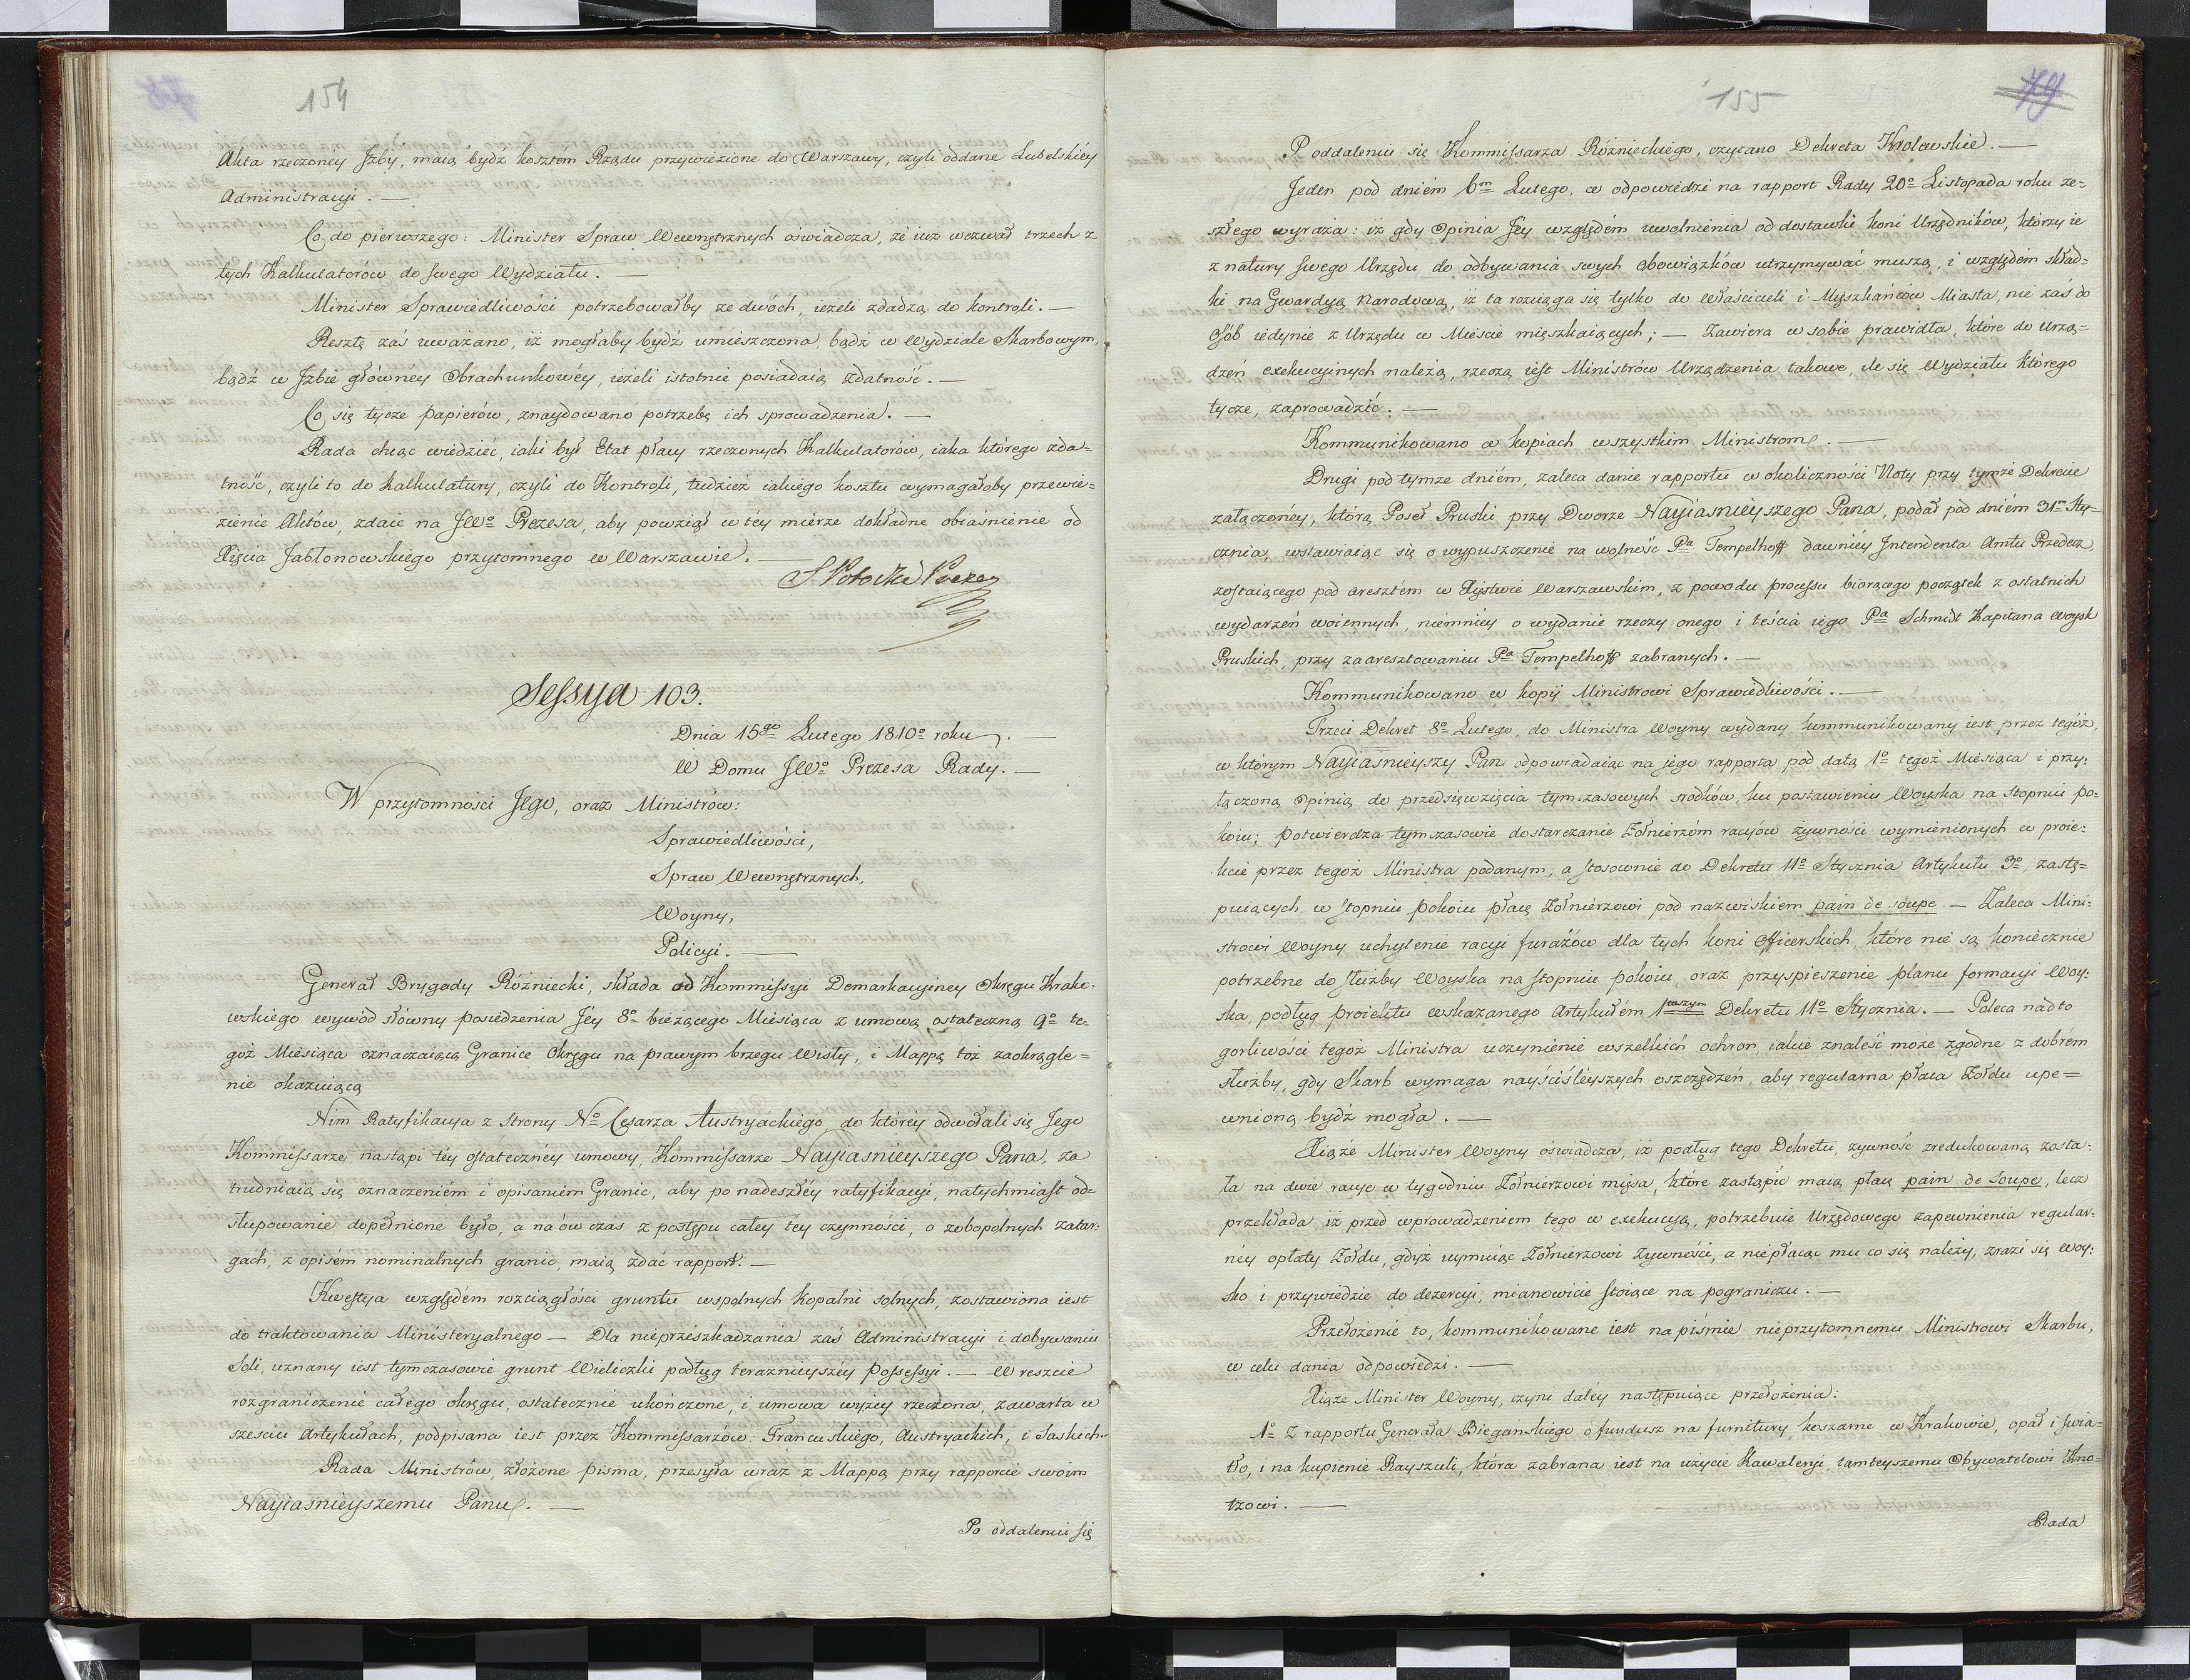 154
Akta rzeczonéy Jzby, maią bydź kosztém Rządu przywiezione do Warszawy, czyli oddane Lubelskiéy
Administracyi. —
Co do pierwszego: Minister Spraw Wewnętrznych oświadcza, że iuż wezwał trzech z
tych Kalkulatorów do swego Wydziału. —
Minister Sprawiedliwości potrzebowałby ze dwóch, ieżeli zdadzą do kontroli. —
Resztę zaś uważano, iż mogłaby bydź umieszczona, bądź w Wydziale Skarbowym,
bądź w Jzbie głównéy Obrachunkowéy, ieżeli istotnie posiadaią zdatność. —
Co się tycze papierów, znaydowano potrzebę ich sprowadzenia. —
Rada chcąc wiedzieć, iaki był Etat płacy rzeczonych Kalkulatorów, iaka którego zda=
tność, czyli to do kalkulatury, czyli do Kontroli, tudzież iakiego kosztu wymagałoby przewie=
zienie Aktów, zdaie na JWo Prezesa, aby powziął w téy mierze dokładne obiaśnienie od
Xięcia Jabłonowskiego przytomnego w Warszawie. —
S Potocki Prezes
Sessya 103.
Dnia 15go Lutego 1810o roku. —
W Domu JWo Prezesa Rady. —
W przytomności Jego, oraz Ministrów:
Sprawiedliwości,
Spraw Wewnętrznych,
Woyny,
Policyi. —
Generał Brygady Różniecki, składa od Kommissyi Demarkacyiney Okręgu Krako:
wskiego wywód słówny posiedzenia Jéy 8o bieżącego Miesiąca z umową ostateczną 9o te=
goż Miesiąca oznaczaiącą Granice Okręgu na prawym brzegu Wisły, i Mappą toż zaokrągle=
nie okazuiącą
Nim Ratyfikacya z Strony No Cesarza Austryackiego, do któréy odwołali się Jego
Kommissarze nastąpi téy ostatecznéy umowy, Kommissarze Nayiasnieyszego Pana, za
trudniaią się oznaczeniém i opisaniem Granic, aby po nadeszłéy ratyfikacyi, natychmiast od=
stupowanie dopełnione było, a na ów czas z postępu całey téy czynności, o zobopolnych zatar:
gach, z opisém nominalnych granic, maią zdać rapport. —
Kwestya względém rozciągłości gruntu wspolnych kopalni solnych, zostawiona iest
do traktowania Ministeryalnego — Dla nieprzeszkadzania zaś Administracyi i dobywaniu
Soli, uznany iest tymczasowie grunt Wieliczki podług teraznieyszéy possessyi. — W reszcie
rozgraniczenie całego okręgu, ostatecznie ukończone, i umowa wyżey rzeczona, zawarta w
szesciu Artykułach, podpisana iest przez Kommissarzów: Francuskiego, Austryackich, i Saskich.
Rada Ministrów, złożone pisma, przesyła wraz z Mappą przy rapporcie swoim
Nayiasnieyszemu Panu. —
Po oddaleniu się
155
79
Po oddaleniu się Kommissarza Różnieckiego, czytano Dekreta Krolewskie. —
Jeden pod dniém 6m Lutego, w odpowiedzi na rapport Rady 20o Listopada roku ze=
szłego wyraża: iż gdy Opinia Jéy względém uwolnienia od dostawki koni Urzędników, którzy ie
z natury swego Urzędu do odbywania swych Obowiązków utrzymywać muszą, i względém skład=
ki na Gwardyą Narodową, iż ta rozciąga się tylko do Właścicieli i Myszkańców Miasta, nie zaś do
Osób iedynie z Urzędu w Mieście mięszkaiących; — Zawiera w sobie prawidła, które do Urzą=
dzeń exekucyinych należą, rzeczą iest Ministrów Urządzenia takowe, ile się Wydziału którego
tycze, zaprowadzić. —
Kommunikowano w kopiach wszystkim Ministrom. —
Drugi pod tymże dniém, zaleca danie rapportu w okoliczności Noty przy tymże Dekrecie
załączonéy, którą Poseł Pruski przy Dworze Nayiasniéyszego Pana, podał pod dniém 31m Sty=
cznia, wstawiaiąc się o wypuszczenie na wolność Pa Tempelhoff dawniéy Intendenta Amtu Przedecz,
zostaiącego pod aresztém w Xięstwie Warszawskim, z powodu processu biorącego początek z ostatnich
wydarzeń woiennych, niemniéy o wydanie rzeczy onego i teścia iego Pa Schmidt Kapitana woysk
Pruskich, przy zaaresztowaniu Pa Tempelhoff zabranych. —
Kommunikowano w kopii Ministrowi Sprawiedliwości. —
Trzeci Dekret 8o Lutego, do Ministra Woyny wydany kommunikowany iest przez tegóż,
w którym Nayiaśnieyszy Pan odpowiadaiąc na jego rapporta pod datą 1o tegoż Miesiąca i przy:
łączoną Opinią do przedsięwzięcia tymczasowych srodków, ku postawieniu Woyska na stopniu po=
koiu; potwierdza tymczasowie dostarczanie Zołnierzóm racyów żywności wymienionych w proie=
kcie przez tegoż Ministra podanym, a stosownie do Dekretu 11o Stycznia Artykułu 3o, zastę=
puiących w stopniu pokoiu płacę Zołnierzowi pod nazwiskiem pain de soupe. — Zaleca Mini:
strowi Woyny uchylenie racyi furażów dla tych koni Officerskich, które nie są koniecznie
potrzebne do służby Woyska na stopniu pokoiu, oraz przyspieszenie planu formacyi Woy:
ska, podług proiektu wskazanego Artykułém 1wszym Dekretu 11o Stycznia. — Poleca nadto
gorliwości tegoż Ministra uczynienie wszelkich ochron iakie znaleść może zgodne z dobrém
służby, gdy Skarb wymaga nayściśléyszych oszczędzeń, aby regularna płaca Zołdu upe=
wnioną bydź mogła. —
Xiąże Minister Woyny oświadcza, iż podług tego Dekretu, zywność zredukowaną zosta:
ła na dwie racye w tygodniu Zołnierzowi mięsa, które zastąpić maią płacę pain de Soupe, lecz
przekłada, iż przed wprowadzeniem tego w exekucyą, potrzebuie Urzędowego zapewnienia regular:
néy opłaty Zołdu, gdyż uymuiąc Zołnierzowi Zywności, a niepłacąc mu co się należy, zrazi się woy:
sko i przywiedzie do dezercyi, mianowicie stoiące na pograniczu. —
Przełożenie to, kommunikowane iest na piśmie nieprzytomnemu Ministrowi Skarbu,
w celu dania odpowiedzi. —
Xiąże Minister Woyny, czyni daley następuiące przełożenia:
1o Z rapportu Generała Biegańskiego o fundusz na furnitury koszarne w Krakowie, opał i swia=
tło, i na kupienie Rayszuli, która zabrana iest na użycie Kawaleryi, tamteyszemu Obywatelowi Kno=
tzowi. —
Rada